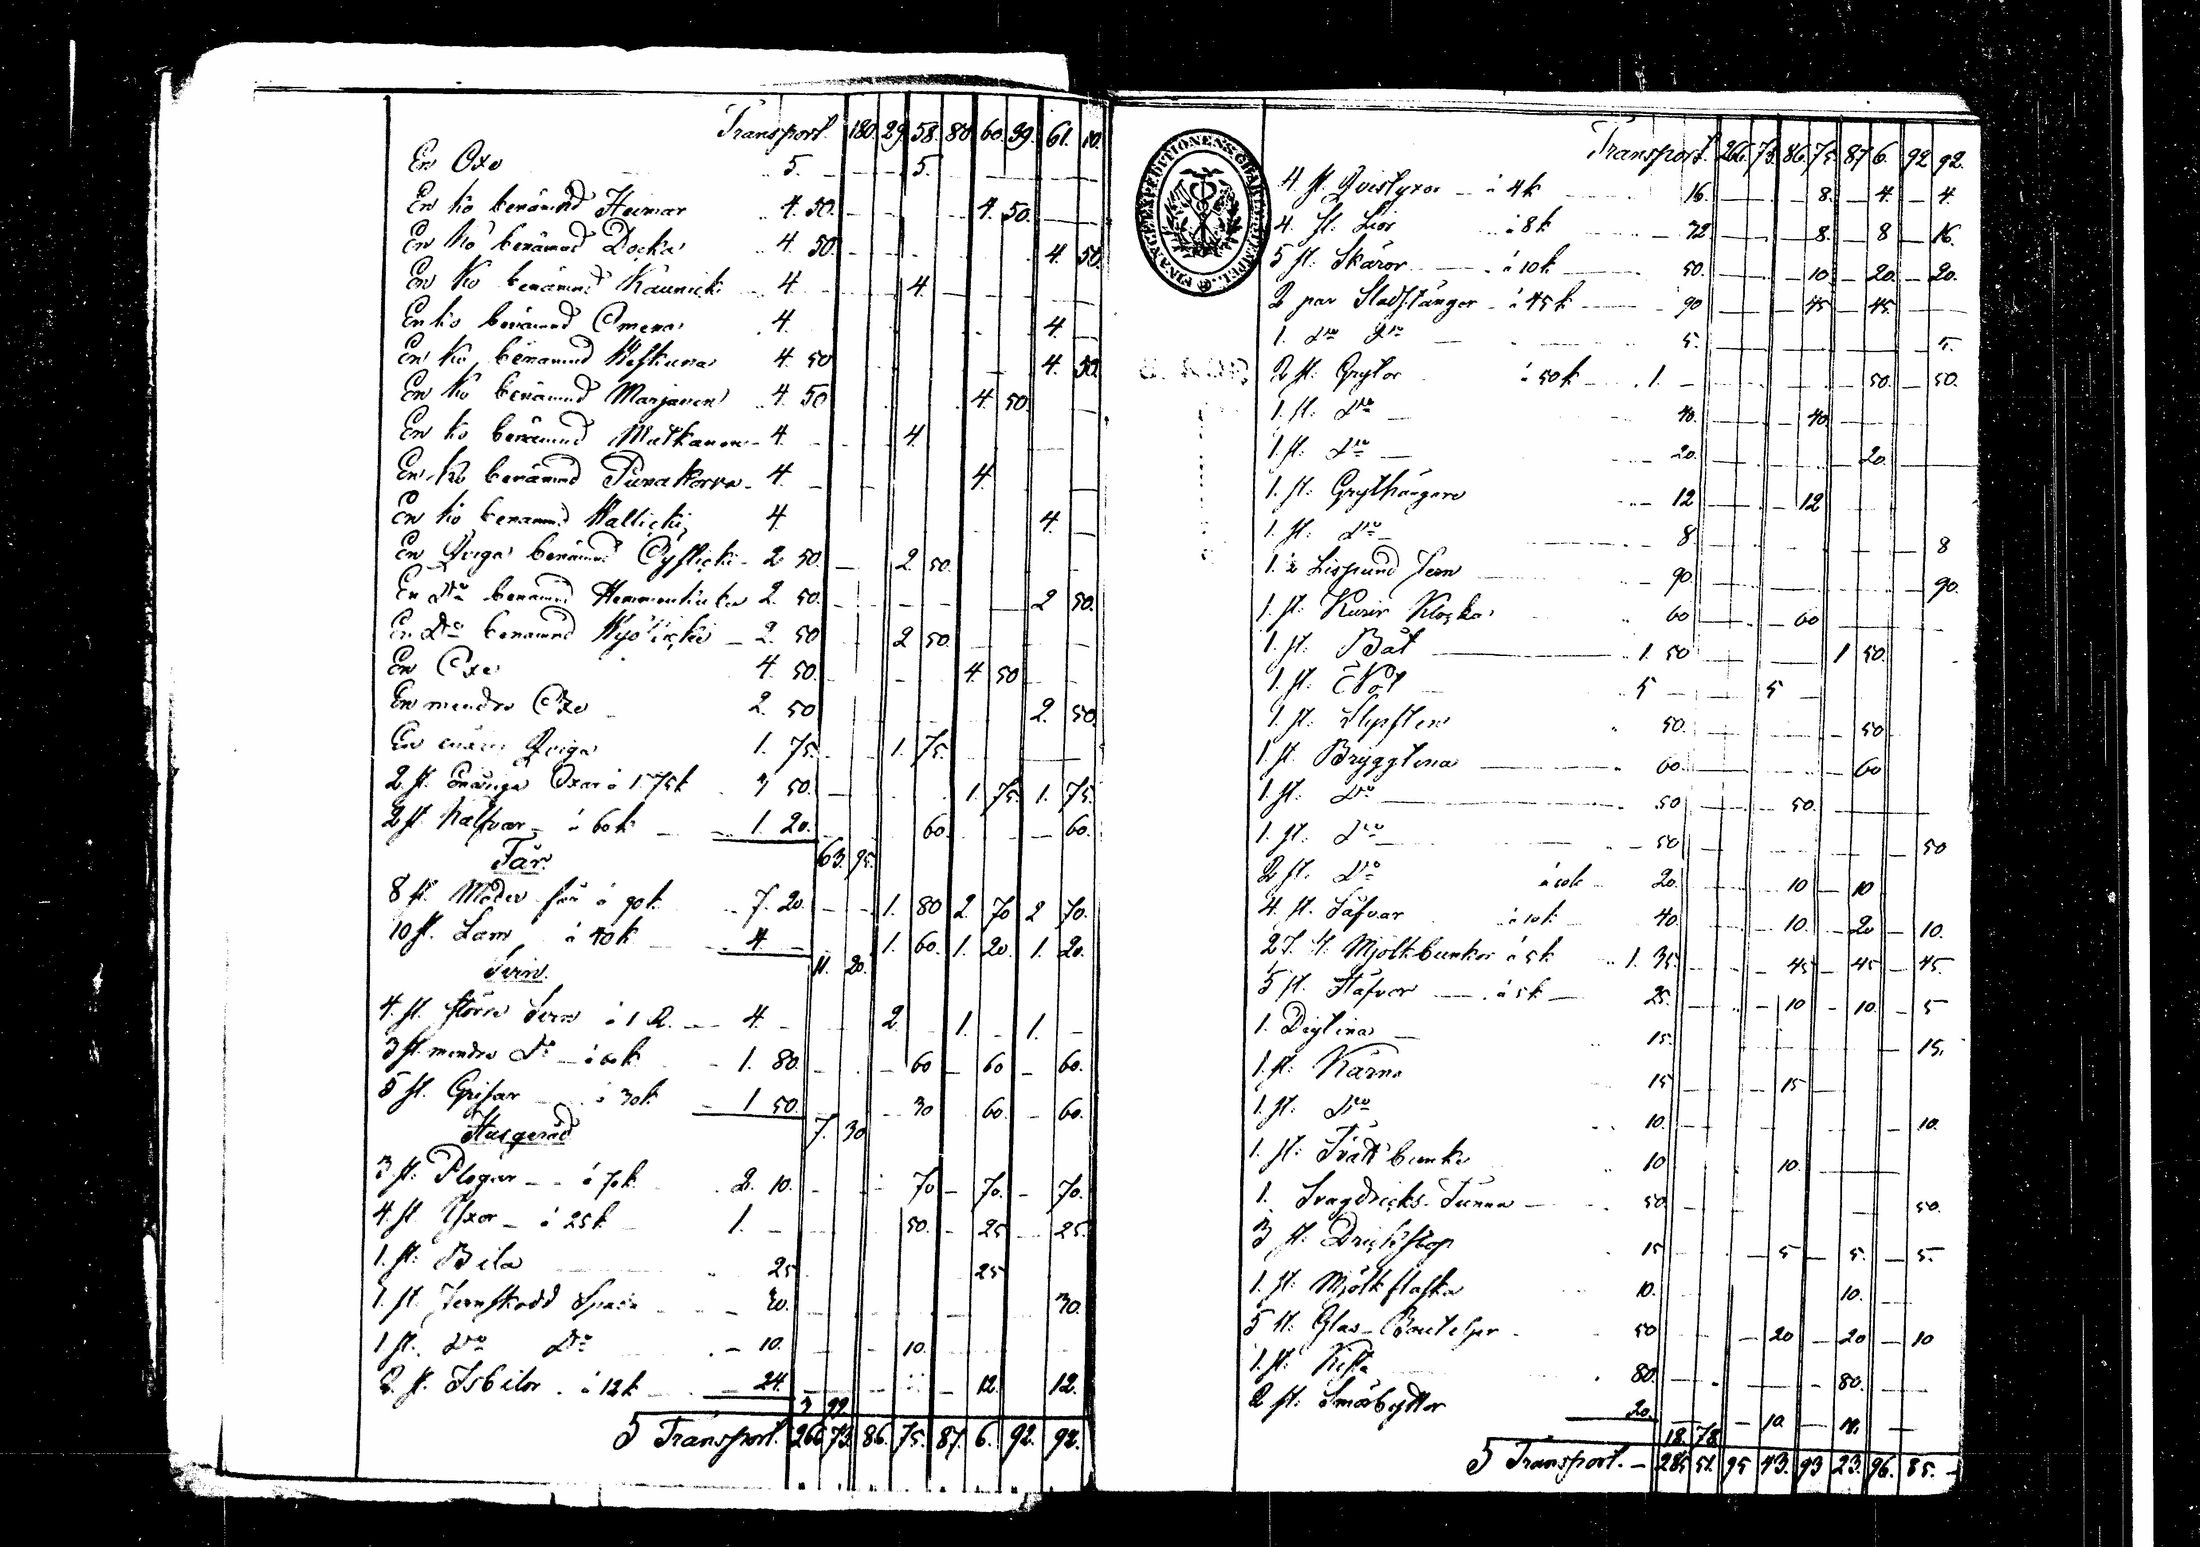 Transport. 180. 29. 58. 80 60. 39. 61. 10.
En Oxe 5. 5.
En Ko benämnd Heimar 4. 50. 4. 50.
En Ko benämnd Docka 4 50. 4. 50.
En Ko benämnd Kaunicki 4 4.
En Ko benämnd Omena 4. 4.
En Ko benämnd 4 50 4. 50.
En Ko benämnd Marjanen 4 50 4 50.
En Ko benämnd Matkanen 4. 4.
En Ko benämnd Punakorva 4. 4.
En Ko benämnd Hallicki 4 4.
En Qviga benämnd 2 50. 2 50.
En Dito benämnd 2. 50. 2 50.
En Dito benämnd 2. 50 2 50.
En Oxe 4 50. 4. 50
En mindre Oxe 2. 50 2. 50.
En Qviga 1. 75. 1. 75.
2 st. Oxar á 1. 75k 3 50. 1. 75. 1. 75.
2 st. Kalfvar á 60k 1. 20. 60. 60.
Får. 63. 95.
8 st. Moder får á 90k 7. 20. 1. 80 2. 70 2 70.
10 st. Lam á 40k 4 1. 60. 1. 20. 1. 20.
Svin. 11. 20.
4. st. större Svin á 1 R. 4. 2. 1. 1.
3 st. mindre Do á 60k 1. 80. 60 60 60.
5 st. Grisar á 30k 1 50. 30 60. 60.
Husgeråd 7. 30
3 st. Plogar á 70k 2. 10. 70 70. 70.
4. st. Yxor á 25k 1. 50. 25 25.
1. st. Bila 25 25
1. st. Jernskodd 30. 30.
1 st. Do Do 10. 10.
2 st. Isbilor á 12k 24. 12. 12.
3 99.
S Transport. 266 73. 86. 75. 87. 6. 92. 92.
FINANCEEXPEDITIONENS
Transport. 266. 73. 86. 75. 87 6. 92 92.
4 st. Qvistyxor á 4k 16. 8. 4. 4.
4. st. Lior á 8k 32 8. 8 16.
5 st. Skäror á 10k 50. 10. 20. 20.
2 par á 45k 90 45 45.
1. Do Do 5. 5.
2 st. Grytor á 50k 1. 50. 50.
1. st. Do 40. 40
1. st. Do 20. 20.
1. st. Grythängare 12 12
1. st. Do 8. 8
1. Lispund Jern 90. 90.
1. st. Klocka 60 60
1. st. Båt 1. 50 1 50.
1. st. Not 5 5
1. st. Slipsten 50. 50
1 st. Bryggtina 60. 60
1. st. Do 50 50.
1. st. Do 50 50
2 st. Do á 10k 20. 10 10
4. st. Såfvar á 10k 40. 10. 20 10.
27 st. Mjölkbunkor á 5k 1. 35. 45 45 45.
5 st. Stäfvor á 5k 25. 10 10. 5
1. Degtina 15. 15.
1. st. Kärna 15 15
1. st. Do 10. 10.
1. st. Tvättbunke 10 10.
1. Svagdricks-Tunna 50. 50.
3 st. Dricksstop 15 5 5. 5.
1. st. Mjölkflaska 10. 10.
5 st. Glas-Bouteljer 50 20 20 10
1. st. Kista 80. 80.
2 st. Smörbyttor 20. 10 10.
18. 78
S Transport. 285 51. 95 43. 93 23. 96. 85.